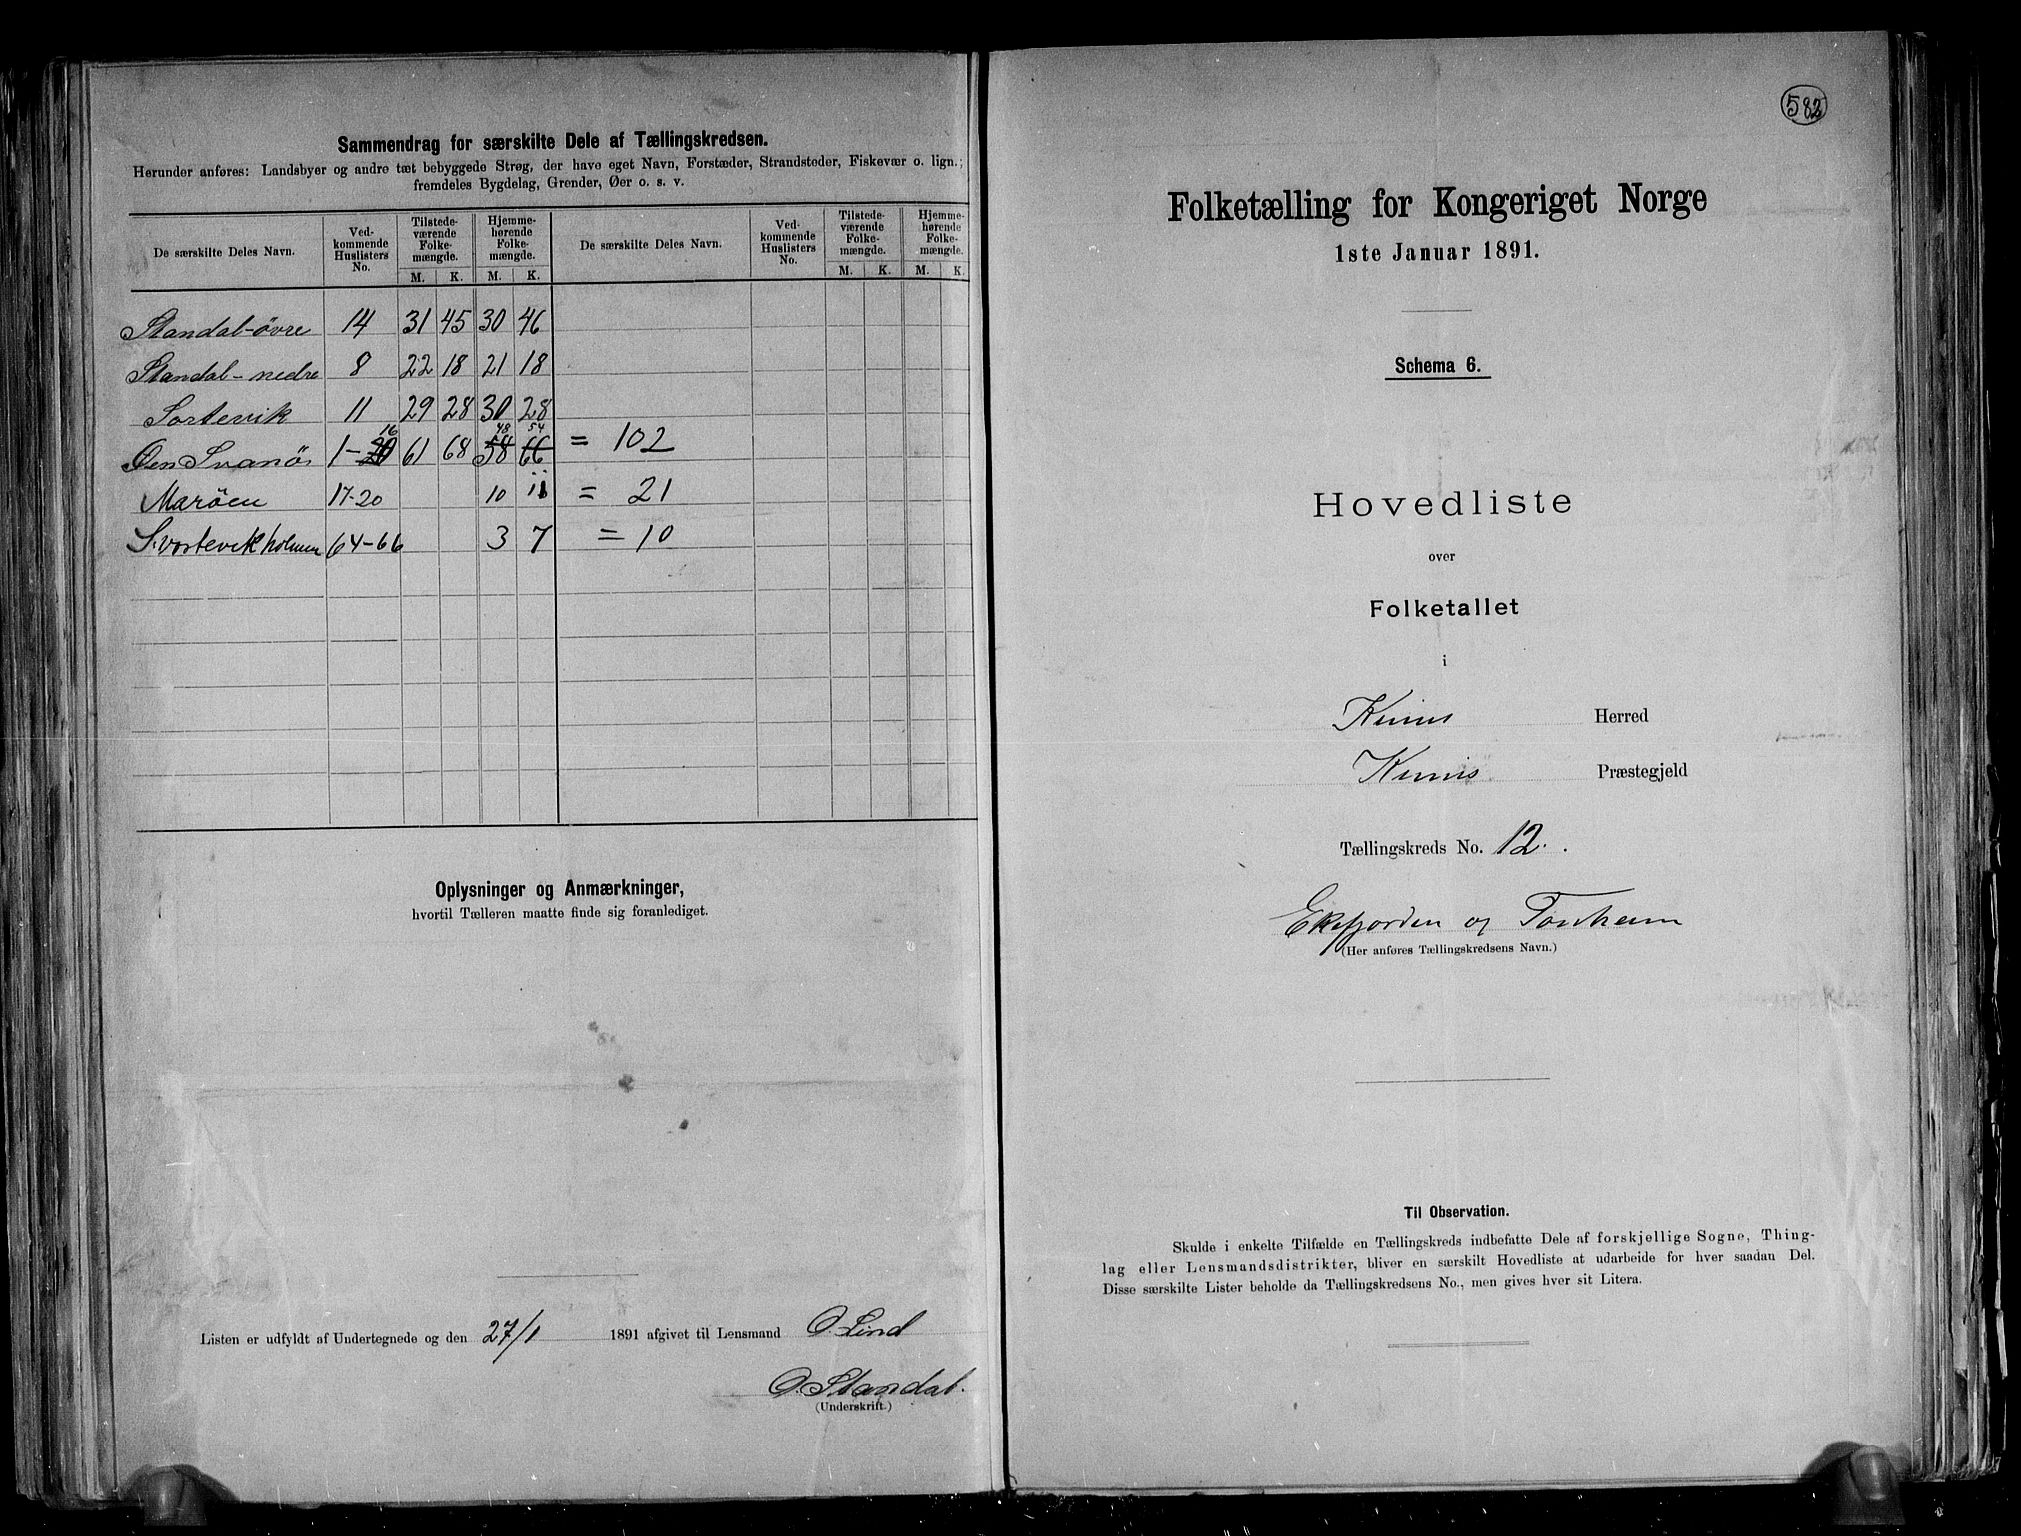 Sammendrag for særskilte Dele af Tællingskredsen.
Herunder anføres: Landsbyer og andre tæt bebyggede Strøg, der have eget Navn, Forstæder, Strandsteder, Fiskevær o. lign.;
fremdeles Bygdelag, Grender, Øer o. s. v.
De særskilte Deles Navn. Vedkommende Huslisters No. Tilstedeværende Folkemængde. M. K. Hjemmehørende Folkemængde. M. K. De særskilte Deles Navn. Vedkommende Huslisters No. Tilstedeværende Folkemængde. M. K. Hjemmehørende Folkemængde. M. K.
Standal-øvre 14 31 45 30 46
Standal-nedre 8 22 18 21 18
Sortevik 11 29 28 30 28
16 48 54
Øen Svanø 1-20 61 68 58 66 = 102
Marøen 17-20 10 11 = 21
Svortevikholmen 64-66 3 7 = 10
Oplysninger og Anmærkninger,
hvortil Tælleren maatte finde sig foranlediget.
Listen er udfyldt af Undertegnede og den 27/1 1891 afgivet til Lensmand O. Lind
O. Standal.
(Underskrift.)
582
Folketælling for Kongeriget Norge
1ste Januar 1891.
Schema 6.
Hovedliste
over
Folketallet
i
Kinns Herred
Kinns Præstegjeld
Tællingskreds No. 12.
Ekefjorden og Tonheim
(Her anføres Tællingskredsens Navn.)
Til Observation.
Skulde i enkelte Tilfælde en Tællingskreds indbefatte Dele af forskjellige Sogne, Thing-
lag eller Lensmandsdistrikter, bliver en særskilt Hovedliste at udarbeide for hver saadan Del.
Disse særskilte Lister beholde da Tællingskredsens No., men gives hver sit Litera.